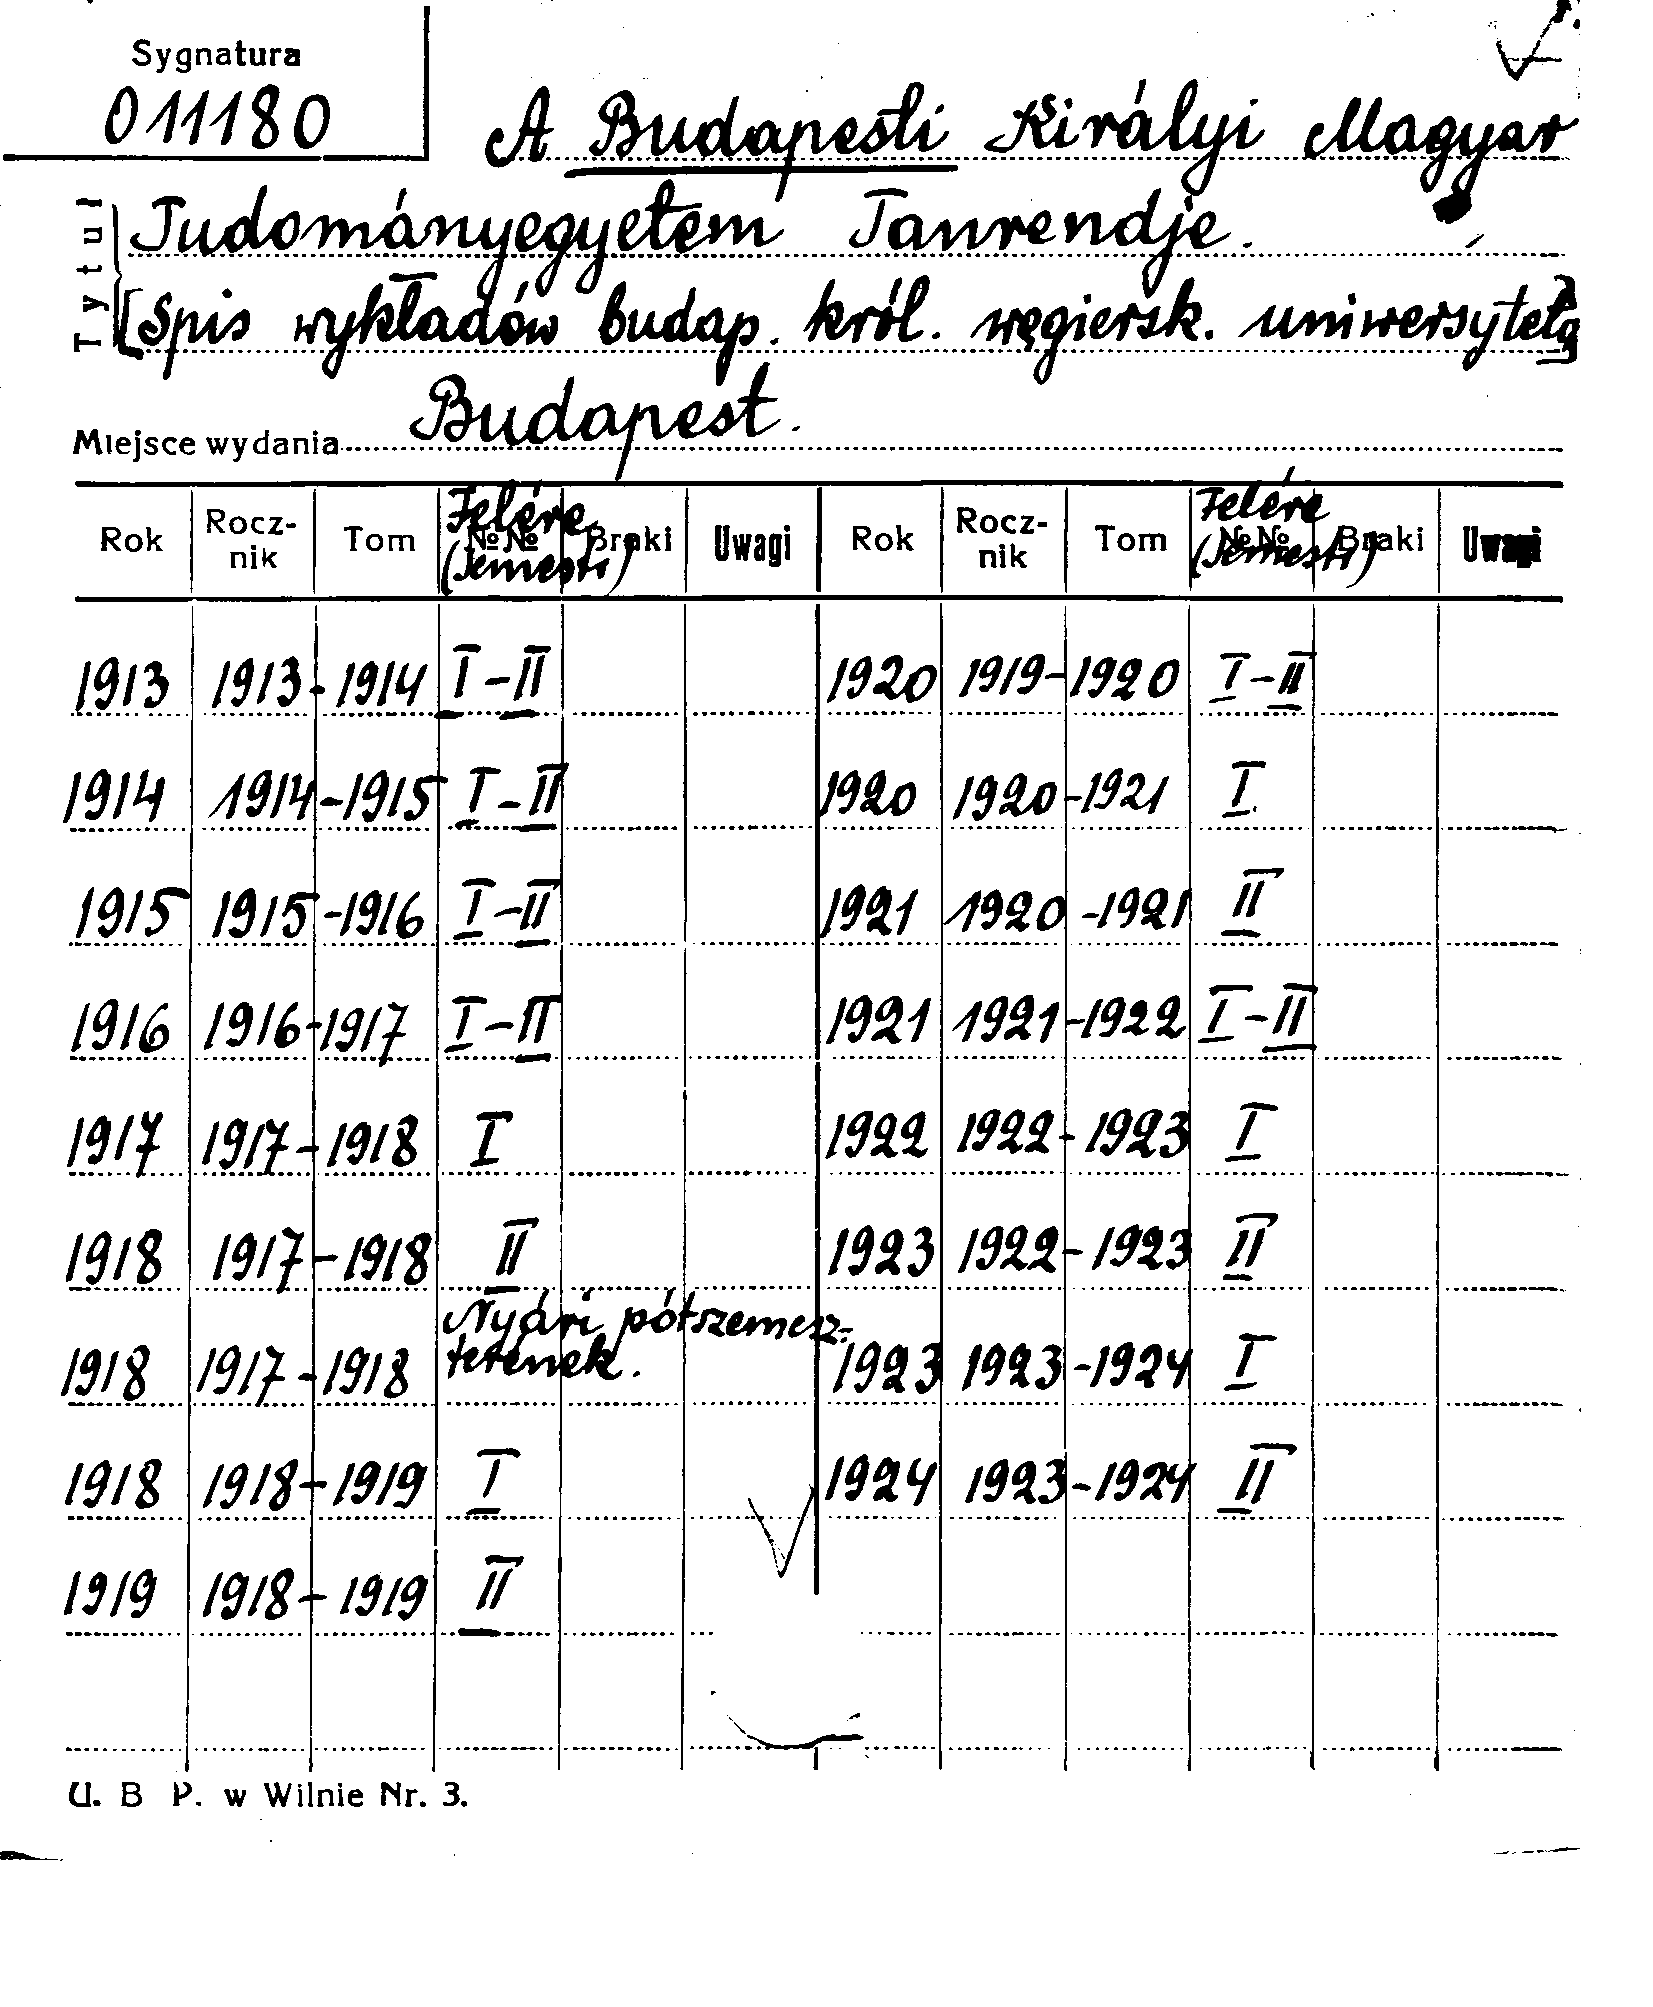 Sygnatura
011180
A Budapesti Királyi Magyar
Tytuł
Tudományegyetem Tanrendje.
[Spis wykładów budap. król. węgiersk. uniwersytetu]
Budapest.
Miejsce wydania
Rok Rocz-nik Tom №№ Felére (Semestr) Braki Uwagi Rok Rocz-nik Tom №№ Felére (Semestr) Braki Uwagi
1913 1913-1914 I-II 1920 1919-1920 I-II
1914 1914-1915 I-II 1920 1920-1921 I.
1915 1915-1916 I-II 1921 1920-1921 II
1916 1916-1917 I-II 1921 1921-1922 I-II
1917 1917-1918 I 1922 1922-1923 I
1918 1917-1918 II 1923 1922-1923 II
1918 1917-1918 Nyári pótszemesz-terének. 1923 1923-1924 I
1918 1918-1919 I 1924 1923-1924 II
1919 1918-1919 II
U. B P. w Wilnie Nr. 3.